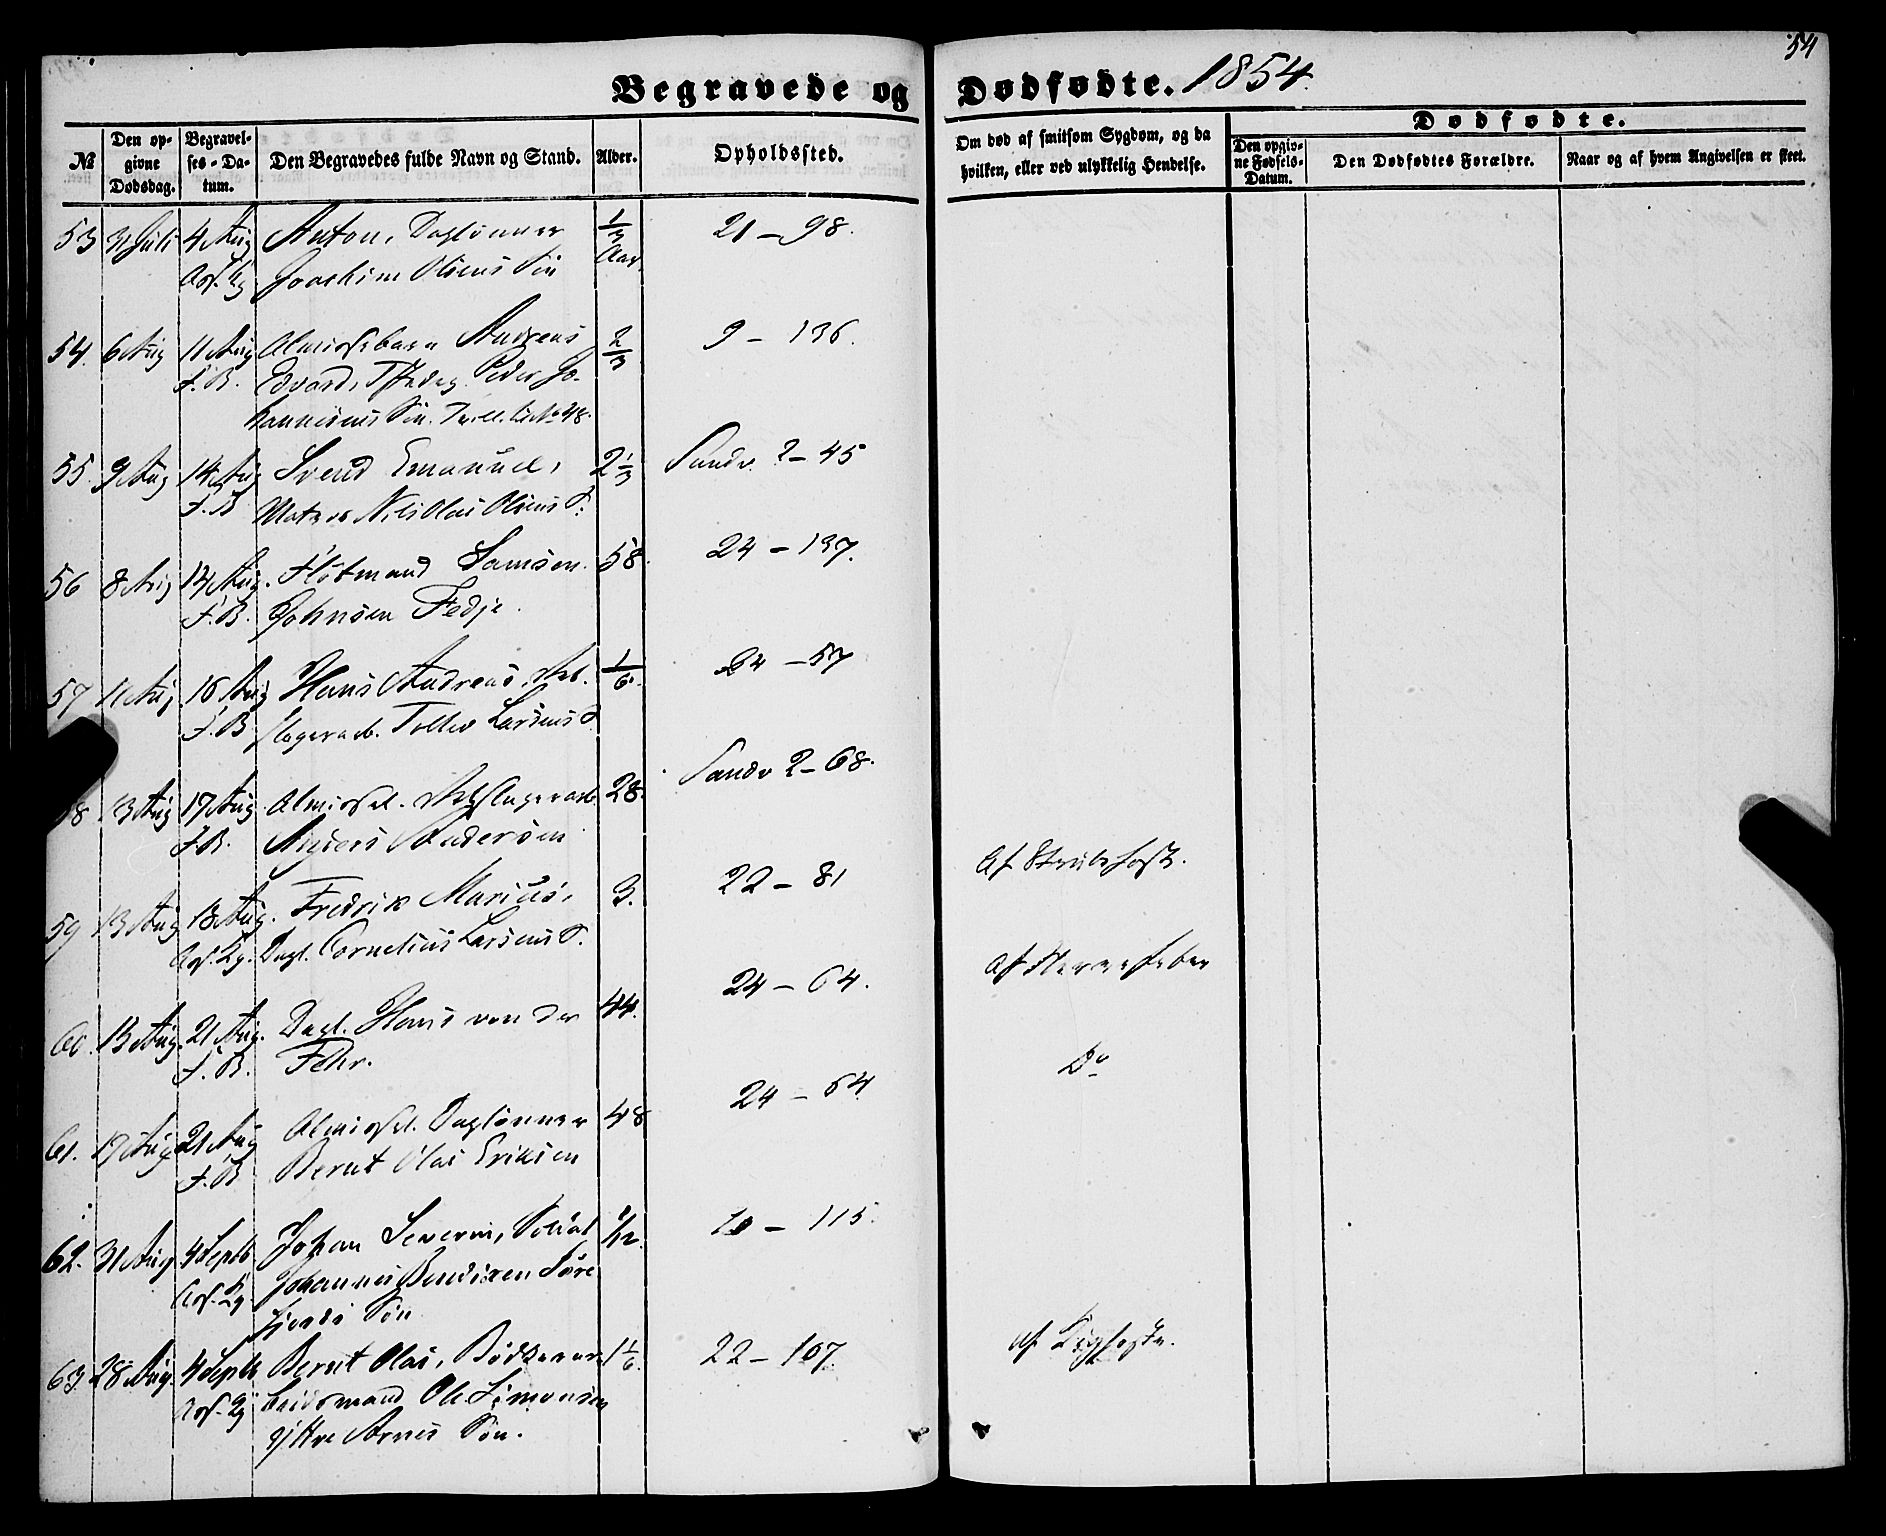 54
Begravede og Dødfødte. 1854.
№
Den op-
givne
Dødsdag.
Begravel-
ses-Da-
tum.
Den Begravedes fulde Navn og Stand.
Alder.
Opholdssted.
Om død af smitsom Sygdom, og da
hvilken, eller ved ulykkelig Hendelse.
Dødfødte.
Den opgiv-
ne Fødsels-
Datum.
Den Dødfødtes Forældre.
Naar og af hvem Angivelsen er skeet.
53 31 Juli 4 Aug Anton, Daglønner 1/3 21 - 98.
Joachim Olsens Søn Aar.
54. 6 Aug 11 Aug Almissebarn Andreas 2/3 9 - 136.
F.B. Edvard, Peder Jo-
hannesens Søn. No 48.
55. 9 Aug 14 Aug Svend Emanuel, 2 1/3 Sandv. 2 - 45
F.B Matros Nils Olai Olsens S.
56 8 Aug Aug. Flötmand Samson 58. 24 - 137.
F.B. Johnsen Fedje.
57 11 Aug 16 Aug Hans Andreas, 1/6. 24 - 57
F.B Tollev Larsens S.
8 13 Aug 17 Aug Almissel. 28. Sandv 2 - 68.
F.B. Andersen
59 13 Aug 18 Aug. Fredrik Marius, 3. 22 - 81 Af Strubehoste.
Dagl. Cornelius Larsens S.
60. 13 Aug. 21 Aug. Dagl. Hans von der 44. 24 - 64. Af Nervefeber
F.B. Fehr.
61. 17 Aug 21 Aug Almissel. Daglønner 48 24 - 64 Do
F.B Bernt Olai Eriksen
62. 31 Aug 4 Septb Johan Severin, Soldat 1/12. 10 - 115.
Johannes Bendixen Søre
Søn
63. 28 Aug. 4 Septb Bernt Olai, Bødkerar- 1 1/6. 22 - 107. af Kighoste.
beidsmand Ole Simonsen
Yttre Arnes Søn.